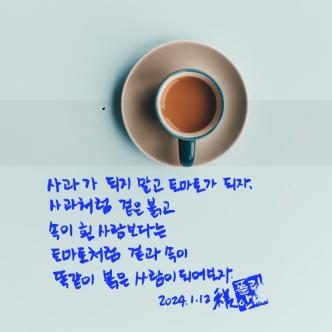 사과가 되지 말고 토마토가 되자.
사과처럼 겉은 붉고
속이 흰 사람보다는
토마토처럼 겉과 속이
똑같이 붉은 사람이 되어보자.
2024. 1. 12